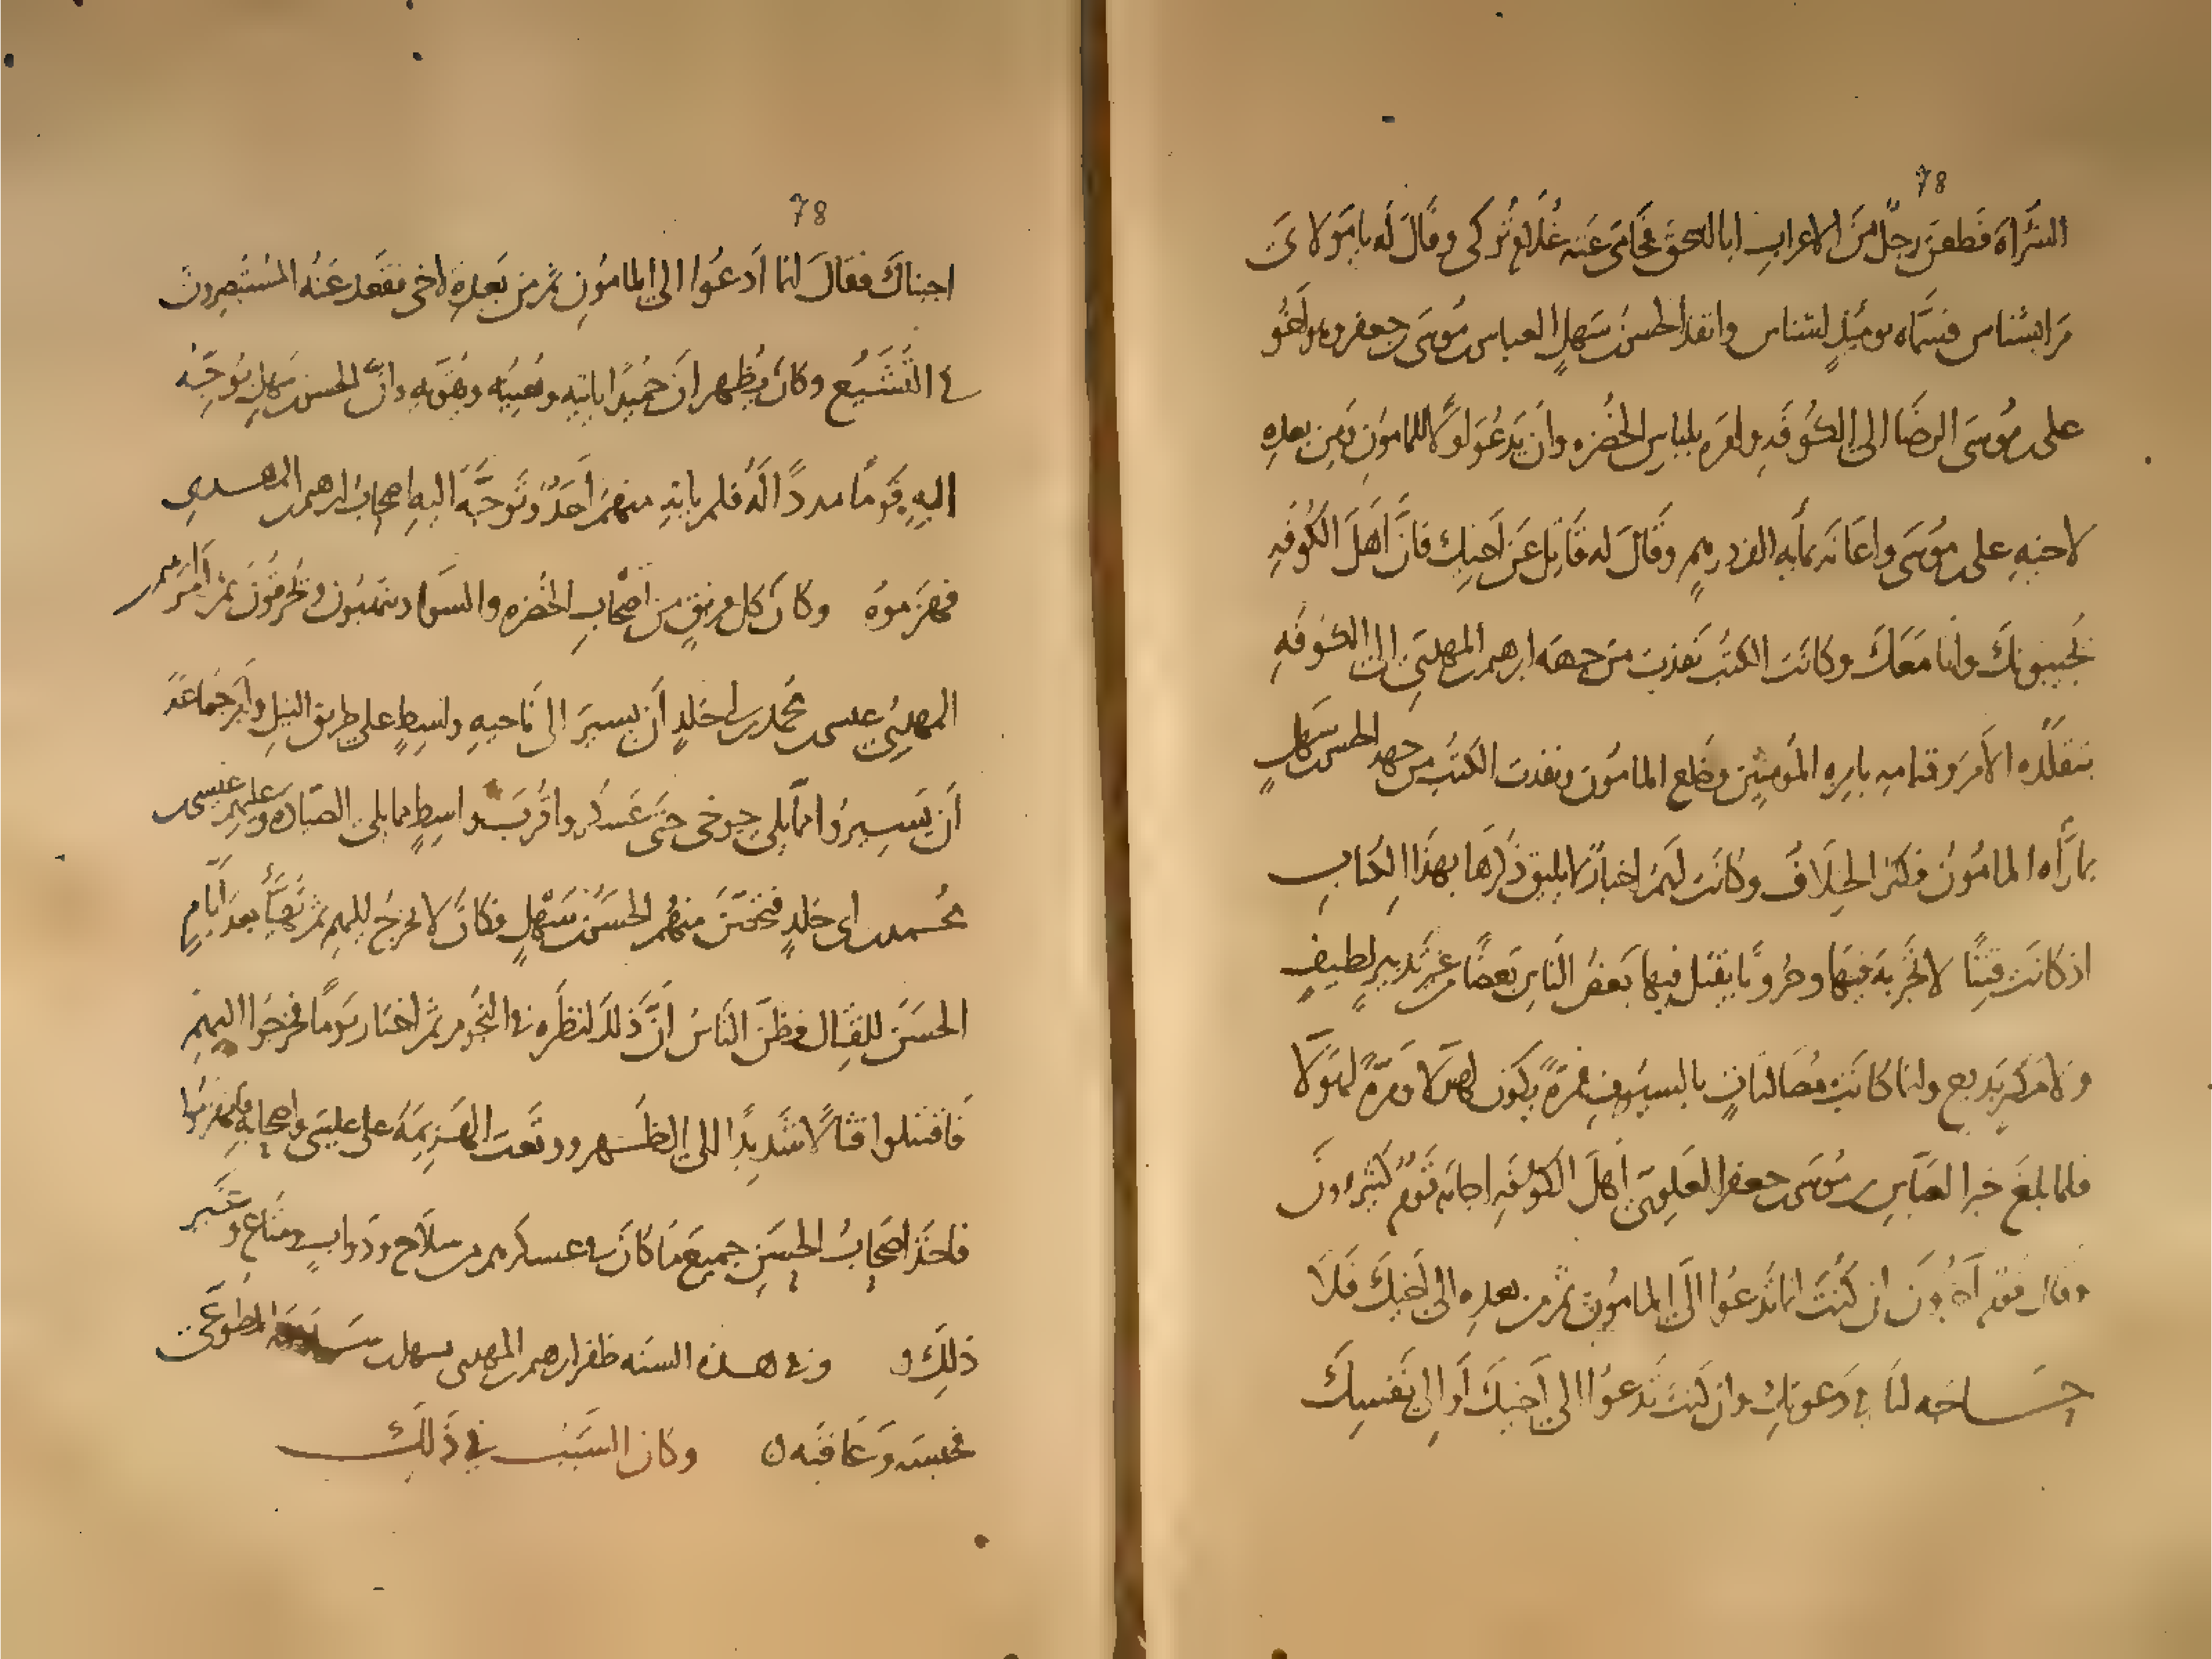 78
الشراة فطعن رجل من الاعراب ابا اسحق فحامى عنه غلام تركى وقال له يا مولاى
مرا بشناس فسماه يومئذ اشناس وانفذ الحسن بن سهل العباس بن موسى بن جعفر وهو اخو
على بن موسى الرضا الى الكوفه وامره بلباس الخضره وان يدعو اولا للمامون ومن بعده
لاخيه على بن موسى واعانه بمايه الف درهم وقال له قاتل عن اخيك فان اهل الكوفه
يجيبونك وانا معك وكانت الكتب نفذت من جهه ابرهيم بن المهدى الى الكوفه
بتقلده الامر وقيامه بامره المومنين وخلع المامون ونفذت الكتب من جهه الحسن بن سهل
بما رآه المامون فكثر الخلاف وكانت لهم اخبار لا يليق ذكرها بهذا الكتاب
اذ كانت فتنا لا تجربه فيها وحروبا يقتل فيها بعض الناس بعضا من غير تدبير لطيف
ولا مكر بديع وانما كانت مصالتات بالسيوف فمره يكون لهولا ومره لهولا
فلما بلغ خبر العباس بن موسى بن جعفر العلوى اهل الكوفه اجابه قوم كثيرون
وقال قوم آخرون ان كنت انما تدعوا الى المامون ثم من بعده الى اخيك فلا
حاجه لنا فى دعوتك وان كنت تدعوا الى اخيك او الى نفسك
78
اجبناك فقال انما ادعوا الى المامون ثم من بعده لاخى فقعد عنه المستبصرون
فى التشيع وكان يظهر ان حميدا ياتيه ويعينه ويقويه وان الحسن بن سهل يوجه
اليه قوما مددا له فلم ياته منهم احد وتوجه اليه اصحاب ابرهيم بن المهدى
فهزموه وكان كل فريق من اصحاب الخضره والسواد ينهبون ويحرقون ثم امر ابرهيم
بن المهدى عيسى بن محمد بن ابى خلد ان يسير الى ناحيه واسط على طريق النيل وامر جماعة
ان يسيروا مما يلى جوخى حتى عسكروا قرب واسط مما يلى الصياده وعليهم عيسى بن
محمد بن ابى خلد فتحصن منهم الحسن بن سهل فكان لا يخرج اليهم ثم تهيأ بعد ايام
الحسن للقتال فظن الناس ان ذلك لنظره فى النجوم ثم اختار يوما فخرجوا اليهم
فاقتتلوا قتالا شديدا الى الظهر ووقعت الهزيمه على عيسى واصحابه فانهزموا
فاخذ اصحاب الحسن جميع ما كان فى عسكرهم من سلاح ودواب ومتاع وغير
ذلك وفى هذه السنه ظفر ابرهيم بن المهدى بسهل بن سلامه المطوعى
فحبسه وعاقبه وكان السبب فى ذلك